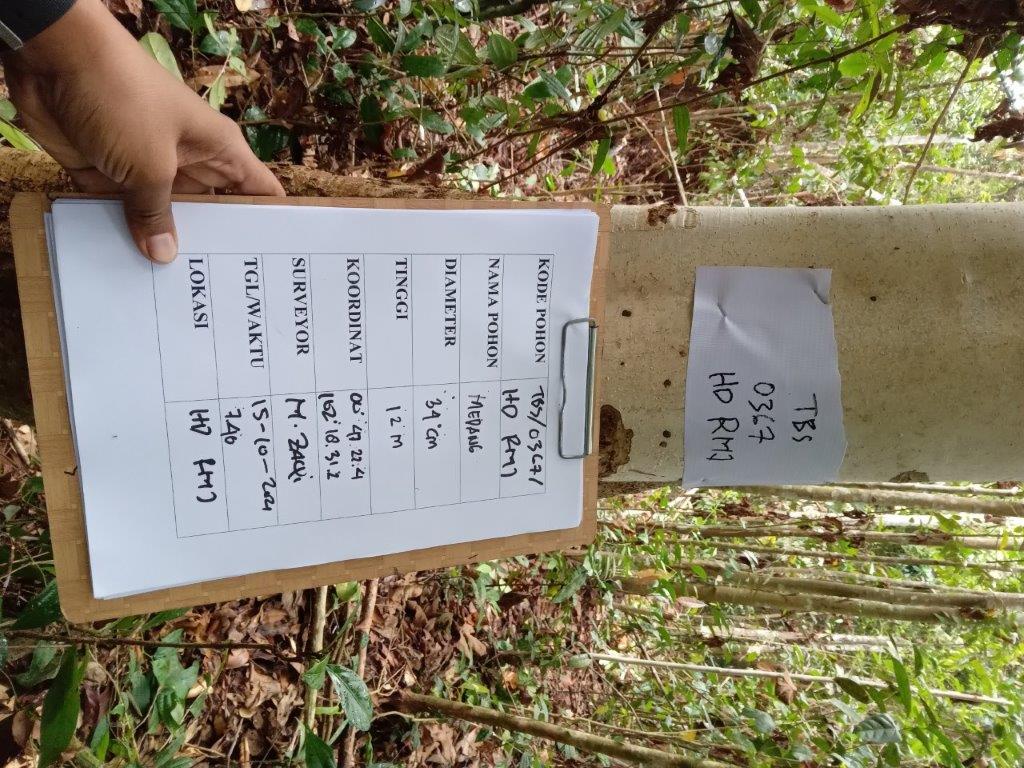 TBS
0367
HD RMJ
KODE POHON TBS/0367/
HD RMJ
NAMA POHON MEDANG
DIAMETER 34 cm
TINGGI 12 M
KOORDINAT
SURVEYOR M. ZAQI
TGL/WAKTU 15-10-2021
740
LOKASI HD RMJ